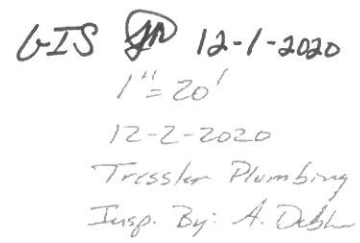 GIS JR 12-1-2020
1"=20'
12-2-2020
Tressler Plumbing
Insp. By: A.